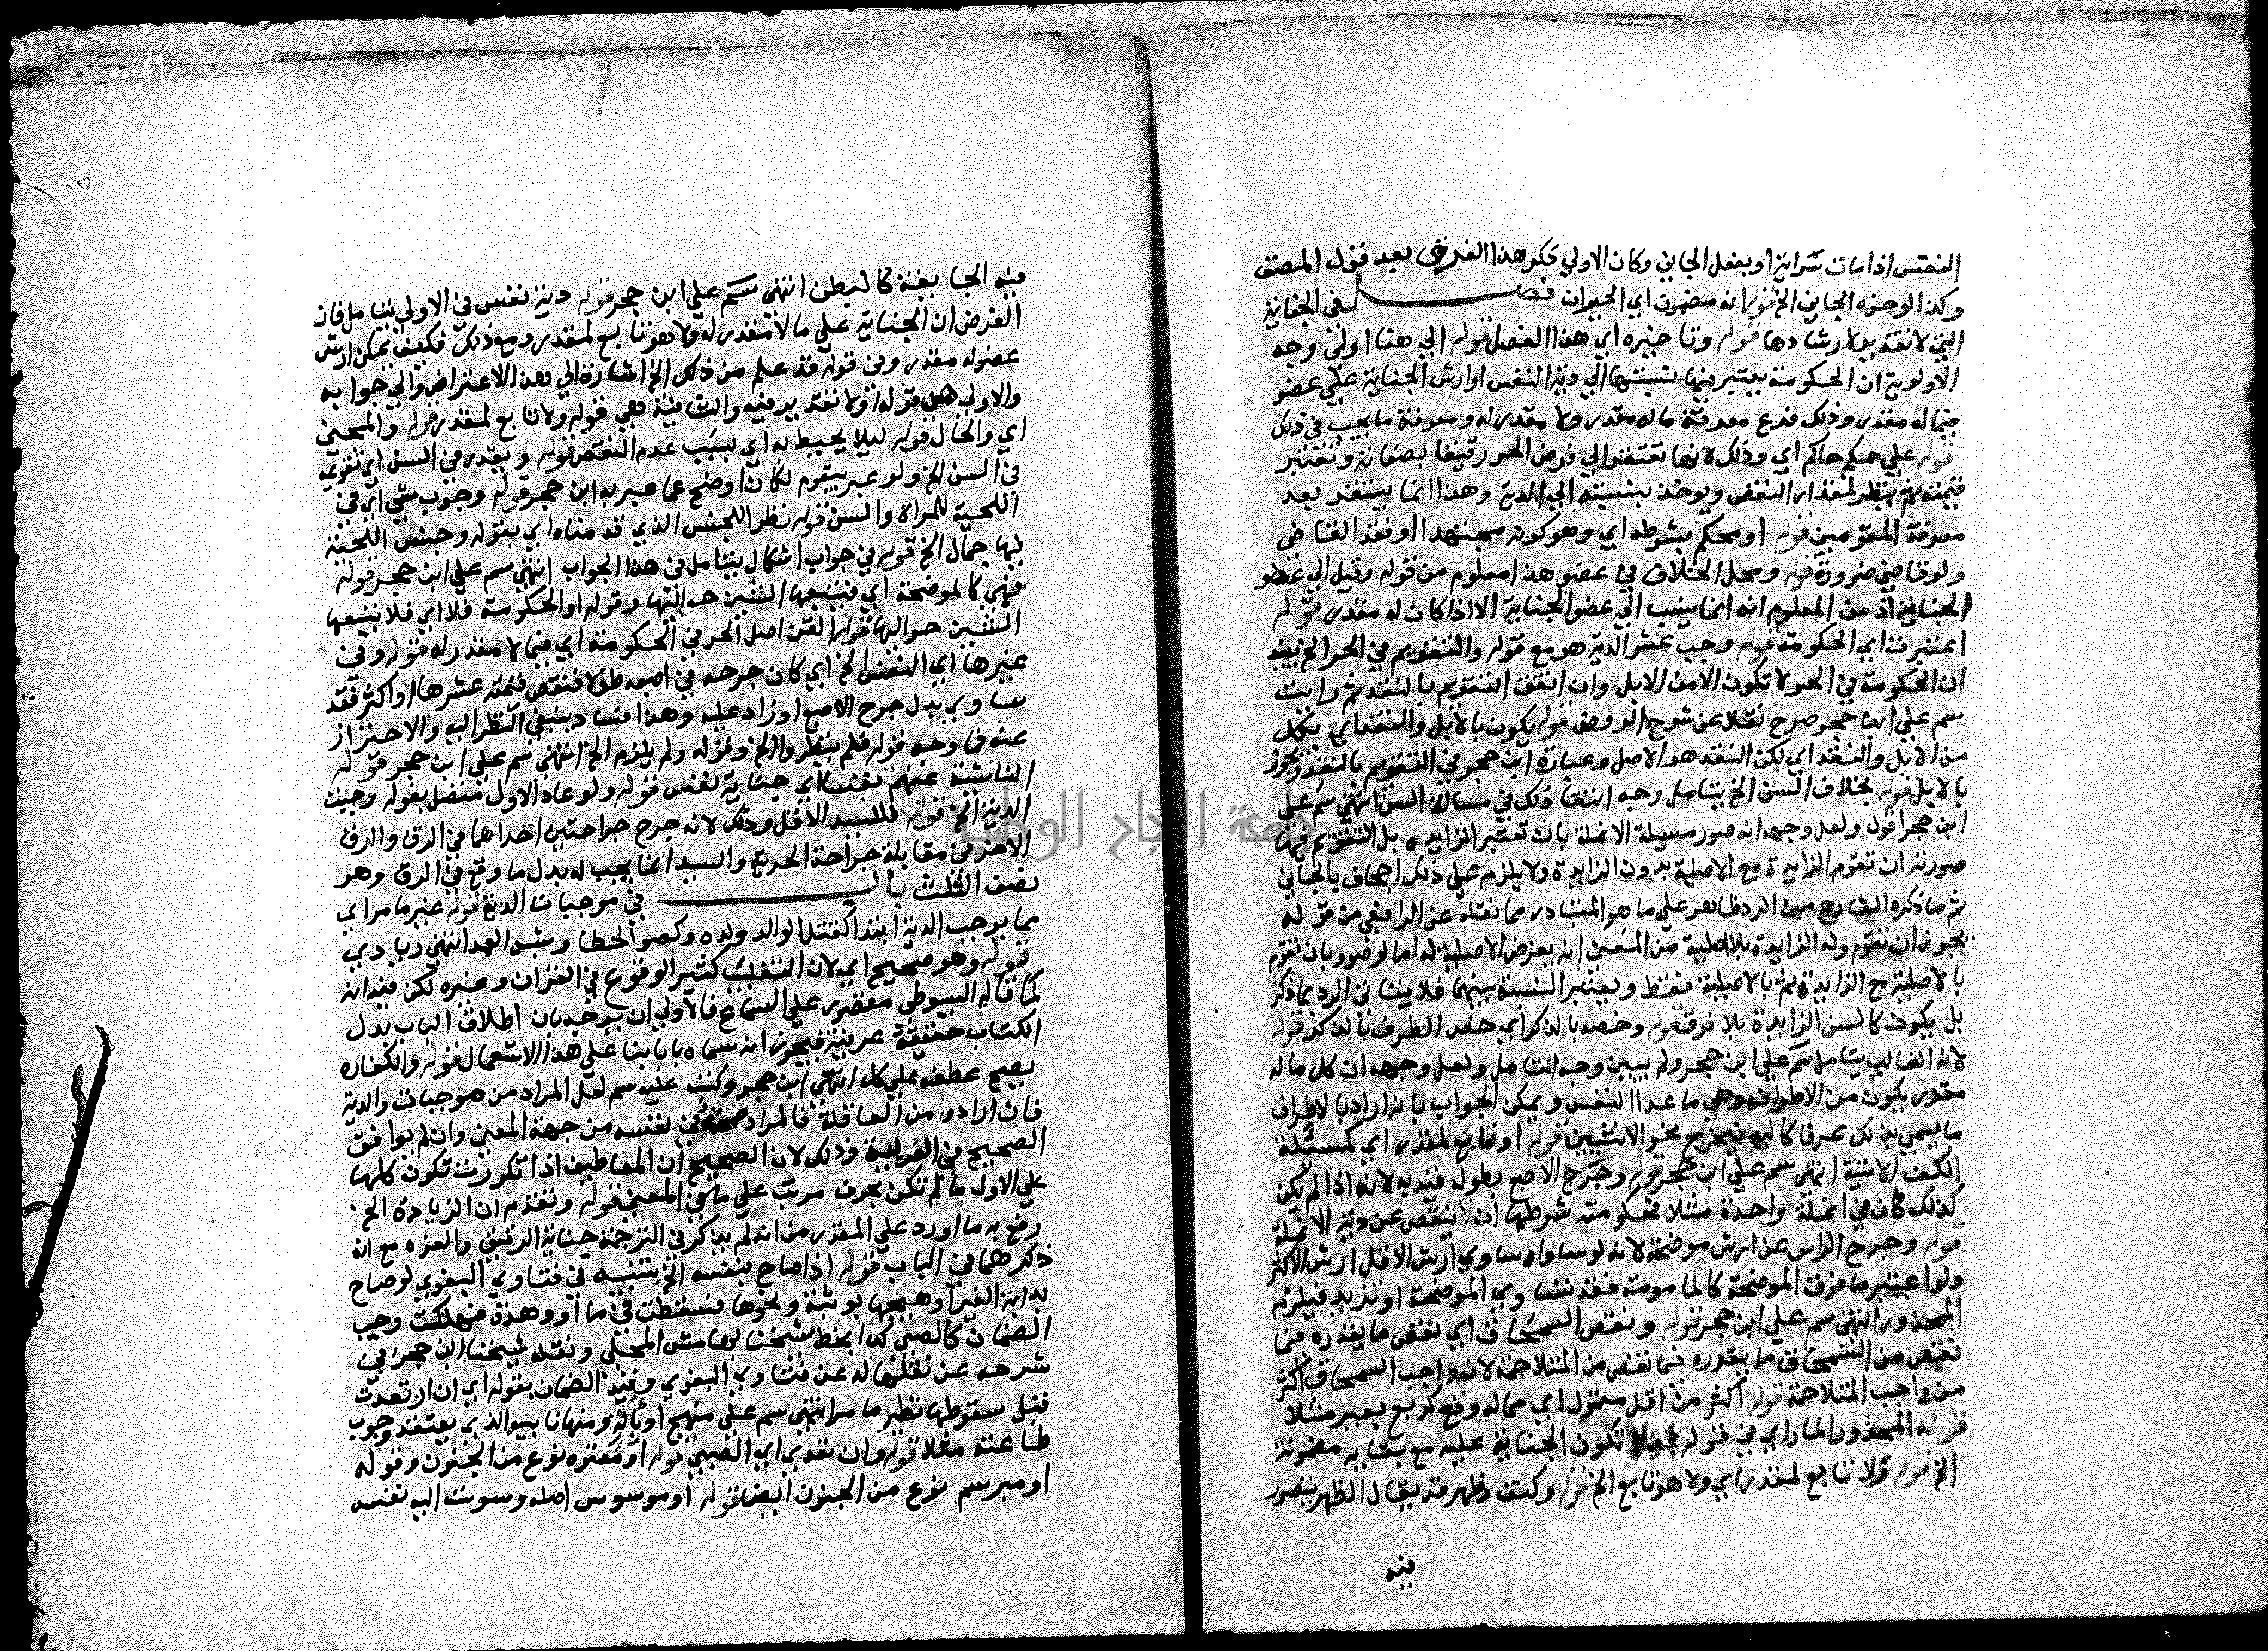 النفس اذا مات سراية او بفعل الجاني وكان الاولي ذكر هذا الفرض بعد قول المصنف
وكذا لو حزه الجاني الخ قوله انه مضمون اي الحيوان فصل في الجناية
التي لا تقدير لارشادها قوله وتاخيره اي هذا الفصل قوله الي هنا اولي وجه
الاولوية ان الحكومة يعتبر فيها نسبتها الي دية النفس او ارش الجناية علي عضو
فيما له مقدر وذلك فرع معرفة ما له مقدر ولا مقدر له ومعرفة ما يجب في ذلك
قوله علي حكم حاكم اي وذلك لانها تفتقر الي فرض الحر رقيقا بصفاته وتعتبر
قيمته ثم ينظر لمقدار النقص ويوخذ بنسبته الي الدية وهذا انما يستقر بعد
معرفة المقومين قوله او محكم بشرطه اي وهو كونه مجتهدا او فقد القاضي
ولو قاضي ضرورة قوله ومحل الخلاف في عضو هذا معلوم من قوله وقيل الي عضو
الجناية اذ من المعلوم انه انما ينسب الي عضو الجناية الا اذا كان له مقدر قوله
اعتبرت اي الحكومة قوله وجب عشر الدية هو مع قوله والتقويم في الحر الخ يفيد
ان الحكومة في الحر لا تكون الا من الابل وان اتفق التقويم بالنقد ثم رايت
سم علي ابن حجر صرح نقلا عن شرح الروض قوله يكون بالابل والنقد اي بكل
من الابل والنقد اي لكن النقد هو الاصل وعبارة ابن حجر في التقويم بالنقد ويجوز
بالابل قوله بخلاف السن الخ يتامل وجه انتفا ذلك في مسالة السن انتهي سم علي
ابن حجر اقول ولعل وجهه انه صور مسيلة الانملة بان تعتبر الزايده بل التقويم فيها
صورته ان تقوم الزايدة مع الاصلية بدون الزايدة ولا يلزم علي ذلك اجحاف بالجاني
ثم ما ذكره الشارح من الرد ظاهر علي ما هو المتبادر مما نقله عن الرافعي من قوله
يجوز ان تقوم وله الزايدة بلا اصلية من المعني انه يفرض الاصلية له اما لو صور بان تقوم
بالاصلية مع الزايدة ثم بالاصلية فقط ويعتبر النسبة بينهما فلا يتاتي الرد بما ذكر
بل يكون كالسن الزايدة بلا فرق قوله وخصه بالذكر اي خص الطرف بالذكر قوله
لانه الغالب يتامل سم علي ابن حجر ولم يبين وجه التامل ولعل وجهه ان كل ما له
مقدر يكون من الاطراف وهي ما عدا النفس ويمكن الجواب بانه اراد بالاطراف
ما يسمي بذلك عرفا كاليد فيخرج نحو الانثيين قوله او تابع لمقدر اي كمسئلة
الكف الاتية انتهي سم علي ابن حجر قوله وجرح الاصبع بطوله قيد به لانه اذا لم يكن
كذلك كان في انملة واحدة مثلا فحكومته شرطها ان تنقص عن دية الانملة
قوله وجرح الراس عن ارش موضحة لانه لو ساواه ساوي ارش الاقل ارش الاكثر
ولو اعتبر ما فوق الموضحة كالمامومة فقد تساوي الموضحة او تزيد فيلزم
المحذور انتهي سم علي ابن حجر قوله ونقص السمحاق اي نقص ما يقدره فيما
نقص من السمحاق ما يقدره فيما نقص من المتلاحمة لانه واجب السمحاق اكثر
من واجب المتلاحمة قوله اكثر من اقل متمول اي مما له وقع كربع بعير مثلا
قوله المحذور المار اي في قوله ليلا تكون الجناية عليه مع بقايه مضمونة
الخ قوله ولا تابع لمقدر اي ولا هو تابع الخ قوله وكتف وظهر قد يقال الظهر يتصور
فيه
فيه الجايفة كالبطن انتهي سم علي ابن حجر قوله دية نفس في الاولي يتامل فان
الفرض ان الجناية علي ما لا مقدر له ولا هو تابع لمقدر ومع ذلك فكيف يمكن ارش
عضو له مقدر وفي قوله قد علم من ذلك الخ اشارة الي هذا الاعتراض والي جوابه
والاولي هي قوله اولا تقدير فيه والثانية هي قوله ولا تابع لمقدر قوله والمجني
اي والحال قوله ليلا يحبط به اي بسبب عدم النقص قوله ويقدر في السن اي تقوي
في السن الخ ولو عبر بيقوم لكان اوضح عما عبر به ابن حجر قوله وجوب شي اي في
اللحية للمراة والسن قوله نظرا للجنس الذي قدمناه اي بقوله وجنس اللحية
فيها جمال الخ قوله في جواب اشكال يتامل في هذا الجواب انتهي سم علي ابن حجر قوله
فهي كالموضحة اي فيتبعها الشين حواليها وقوله او الحكومة فلا اي فلا يتبعها
الشين حواليها قوله القن اصل الحر في الحكومة اي فيما لا مقدر له قوله وفي
غيرها اي النفس الخ اي كان جرحه في اصبعه طولا فنقص قيمته عشرها او اكثر فقد
ساوي بدل جرح الاصبع او زاد عليه وهذا فساد ينبغي النظر اليه والاحتراز
عنه فما وجه قوله فلم ينظروا الخ وقوله ولم يلزم الخ انتهي سم علي ابن حجر قوله
الناشية عنهم نفسا اي جناية نفس قوله ولو عاد الاول متصل بقوله وجبت
الدية الخ قوله فللسيد الاقل وذلك لانه جرح جراحتين احداهما في الرق والرق
الاخري في مقابلة جراحة الحرية والسيد انما يجب له بدل ما وقع في الرق وهو
نصف الثلث باب في موجبات الدية قوله غير ما مر اي
مما يوجب الدية ابتدا كقتل الوالد ولده وكصو الخطا وشبه العمد انتهي زيادي
قوله وهو صحيح اي لان التغليب كثير الوقوع في القران وغيره لكن فيه انه
كما قاله السيوطي مقصور علي السماع فالاولي ان يوجه بان اطلاق الباب بدل
الكتاب حقيقة عرفية فيجوز انه سماه بابا بنا علي هذا الاستعمال قوله والكفاره
يصح عطفه علي كل انتهي ابن حجر وكتب عليه سم لعل المراد من موجبات والدية
فان ارادوا من العاقلة فالمراد صحته في نفسه من جهة المعني وان لم يوافق
الصحيح في العربية وذلك لان الصحيح ان المعاطيف اذا تكررت تكون كلها
علي الاول ما لم تكن بحرف مرتب علي ما في المغني قوله وتقدم ان الزيادة الخ
رفع به ما اورد علي المقدر من انه لم يذكر في الترجمة جناية الرقيق والغره مع انه
ذكرهما في الباب قوله اذا صاح بنفسه الخ تنبيه في فتاوي البغوي لو صاح
بدابة الغير او هيجها بوثبة ونحوها فسقطت في ما او وهدة فهلكت وجب
الضمان كالصبي كذا بخط شيخنا بهامش المحلي ونقله شيخنا ابن حجر في
شرحه عن نقلها له عن فتاوي البغوي وقيد الضمان بقوله اي ان ارتعدت
قبل سقوطها نظير ما مر انتهي سم علي منهج اوبالة ومنها نابيو الذي يعتقد وجوب
طاعته مثلا قوله وان تعدي اي الصبي قوله او معتوه نوع من الجنون وقوله
او مبرسم نوع من الجنون ايضا قوله او موسوس اصله وسوست اليه نفسه